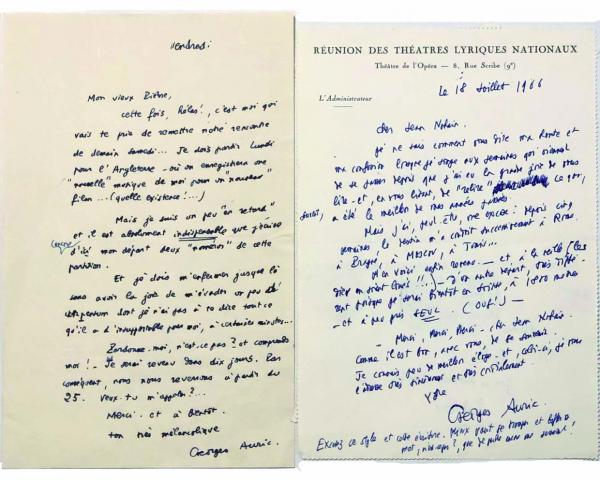 Vendredi
Mon vieux Pierre,
cette fois, hélas!, c'est moi qui
vais te prier de remettre notre rencontre
de demain samedi... Je dois partir lundi
pour l'Angleterre - où on enregistrera une
"nouvelle" musique de moi pour un "nouveau"
film... (quelle existence!...)
Mais je suis un peu "en retard"
et il est absolument indispensable que j'écrive
d'ici mon départ deux "numéros" de cette
partition.
Et je dois m'enfermer jusque là
sans avoir la joie de m'évader un peu
dont je n'ai pas à te dire tout ce
qu'il a d'insupportable pour moi, à certaines minutes...
Pardonne-moi, n'est-ce pas? et comprends
moi! - Je serai revenu dans dix jours. Par
conséquent, nous nous reverrons à partir du
25. Veux-tu m'appeler?...
Merci. et à bientôt.
ton très mélancolique
Georges Auric.
RÉUNION DES THÉATRES LYRIQUES NATIONAUX
Théâtre de l'Opéra — 8, Rue Scribe (9ᵉ)
L'Administrateur
le 18 Juillet 1966
Cher Jean Nohain.
Je ne sais comment vous dire ma honte et
ma confusion lorsque je songe aux semaines qui viennent
de se passer depuis que j'ai eu la grande joie de vous
lire - et, en vous lisant, de "relire" ce qui,
a été le meilleur de mes années
Mais j'ai, peut-être, une excuse: depuis cinq
semaines le destin m'a conduit successivement à Rome,
à Prague, à Moscou, à Tunis...
M'en voici enfin revenu - et à la veille (les
- d'un autre départ, très différent
puisque je serai bientôt en Suisse, à 1800 mètres
- et à peu près SEUL. (OUF!) -
- Merci, Merci, Merci - cher Jean Nohain.
Comme il est bon, avec vous, de se souvenir.
Je connais peu de meilleur éloge - et, celui-ci, je vous
l'adresse très sincèrement et très cordialement.
Vôtre
Georges Auric.
Excusez ce style et cette écriture. Mieux vaut se tromper et
mot, n'est-ce pas?, que de